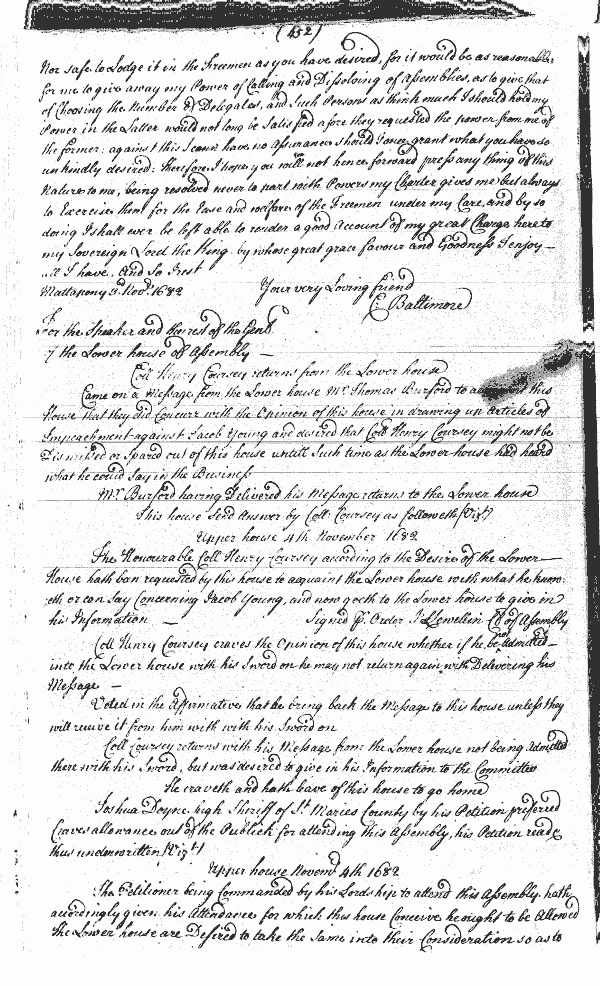 (452)
Nor safe to Lodge it in the Freemen as you have desired, for it would be as reasonable
for me to give away my Power of Calling and Dissolving of Assemblies, as to give that
of Choosing the Number of Delegates, and Such Persons as think much I should hold my
Power in the Latter would not long be Satisfied afore they requested the power from me of
the former: against this I can have no Assurance should I once grant what you have so
unkindly desired: therefore I hope you will not hence forward press any thing of this
Nature to me, being resolved never to part with Powers my Charter gives me but always
to Exercise them for the Ease and welfare of the Freemen under my Care, and by so
doing I shall ever be left able to render a good Account of my great Charge here to
my Sovereign Lord the King by whose great grace favour and Goodness I enjoy —
all I have. And So I rest
Mattapony 3d. Novr. 1682 Your very Loving friend
C: Baltimore
For the Speaker and the rest of the Gent
of the Lower house of Assembly —
Coll Henry Coursey returns from the Lower house
Came on a Message from the Lower house Mr. Thomas Burford to this
House that they did Concurr with the Opinion of this house in drawing up Articles of
Impeachment against Jacob Young and desired that Coll Henry Coursey might not be
Dismissed or Spared out of this house untill Such time as the Lower house had heard
what he could Say in the Business
Mr. Burford having Delivered his Message returns to the Lower house
This house Send Answer by Coll: Coursey as followeth (Vizt)
Upper house 4th November 1682
The Honourable Coll Henry Coursey according to the Desire of the Lower —
House hath ban requested by this house to acquaint the Lower house with what he know
eth or can Say Concerning Jacob Young, and now goeth to the Lower house to give in
his Information — Signed P. Order J Llewellin Cl of Assembly
Coll Henry Coursey craves the Opinion of this house whether if he be not admitted
into the Lower house with his Sword on he may not return again with Delivering his
Message —
Voted in the Affirmative that he bring back the Message to this house unless they
will receive it from him with with his Sword on
Coll Coursey returns with his Message from the Lower house not being Admitted
there with his Sword, but was desired to give in his Information to the Committee
He craveth and hath leave of this house to go home
Joshua Doyne high Sheriff of St. Maries County by his Petition preferred
Craves allowance out of the Publick for attending this Assembly, his Petition read
thus underwritten (Vizt)
Upper house Novemr 4th 1682
The Petitioner being Commanded by his Lordship to attend this Assembly hath
accordingly given his Attendance for which this house Conceive he ought to be Allowed
The Lower house are Desired to take the Same into their Consideration so as to